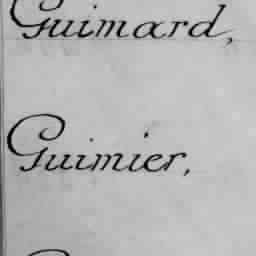 Guimard,
Guimier,